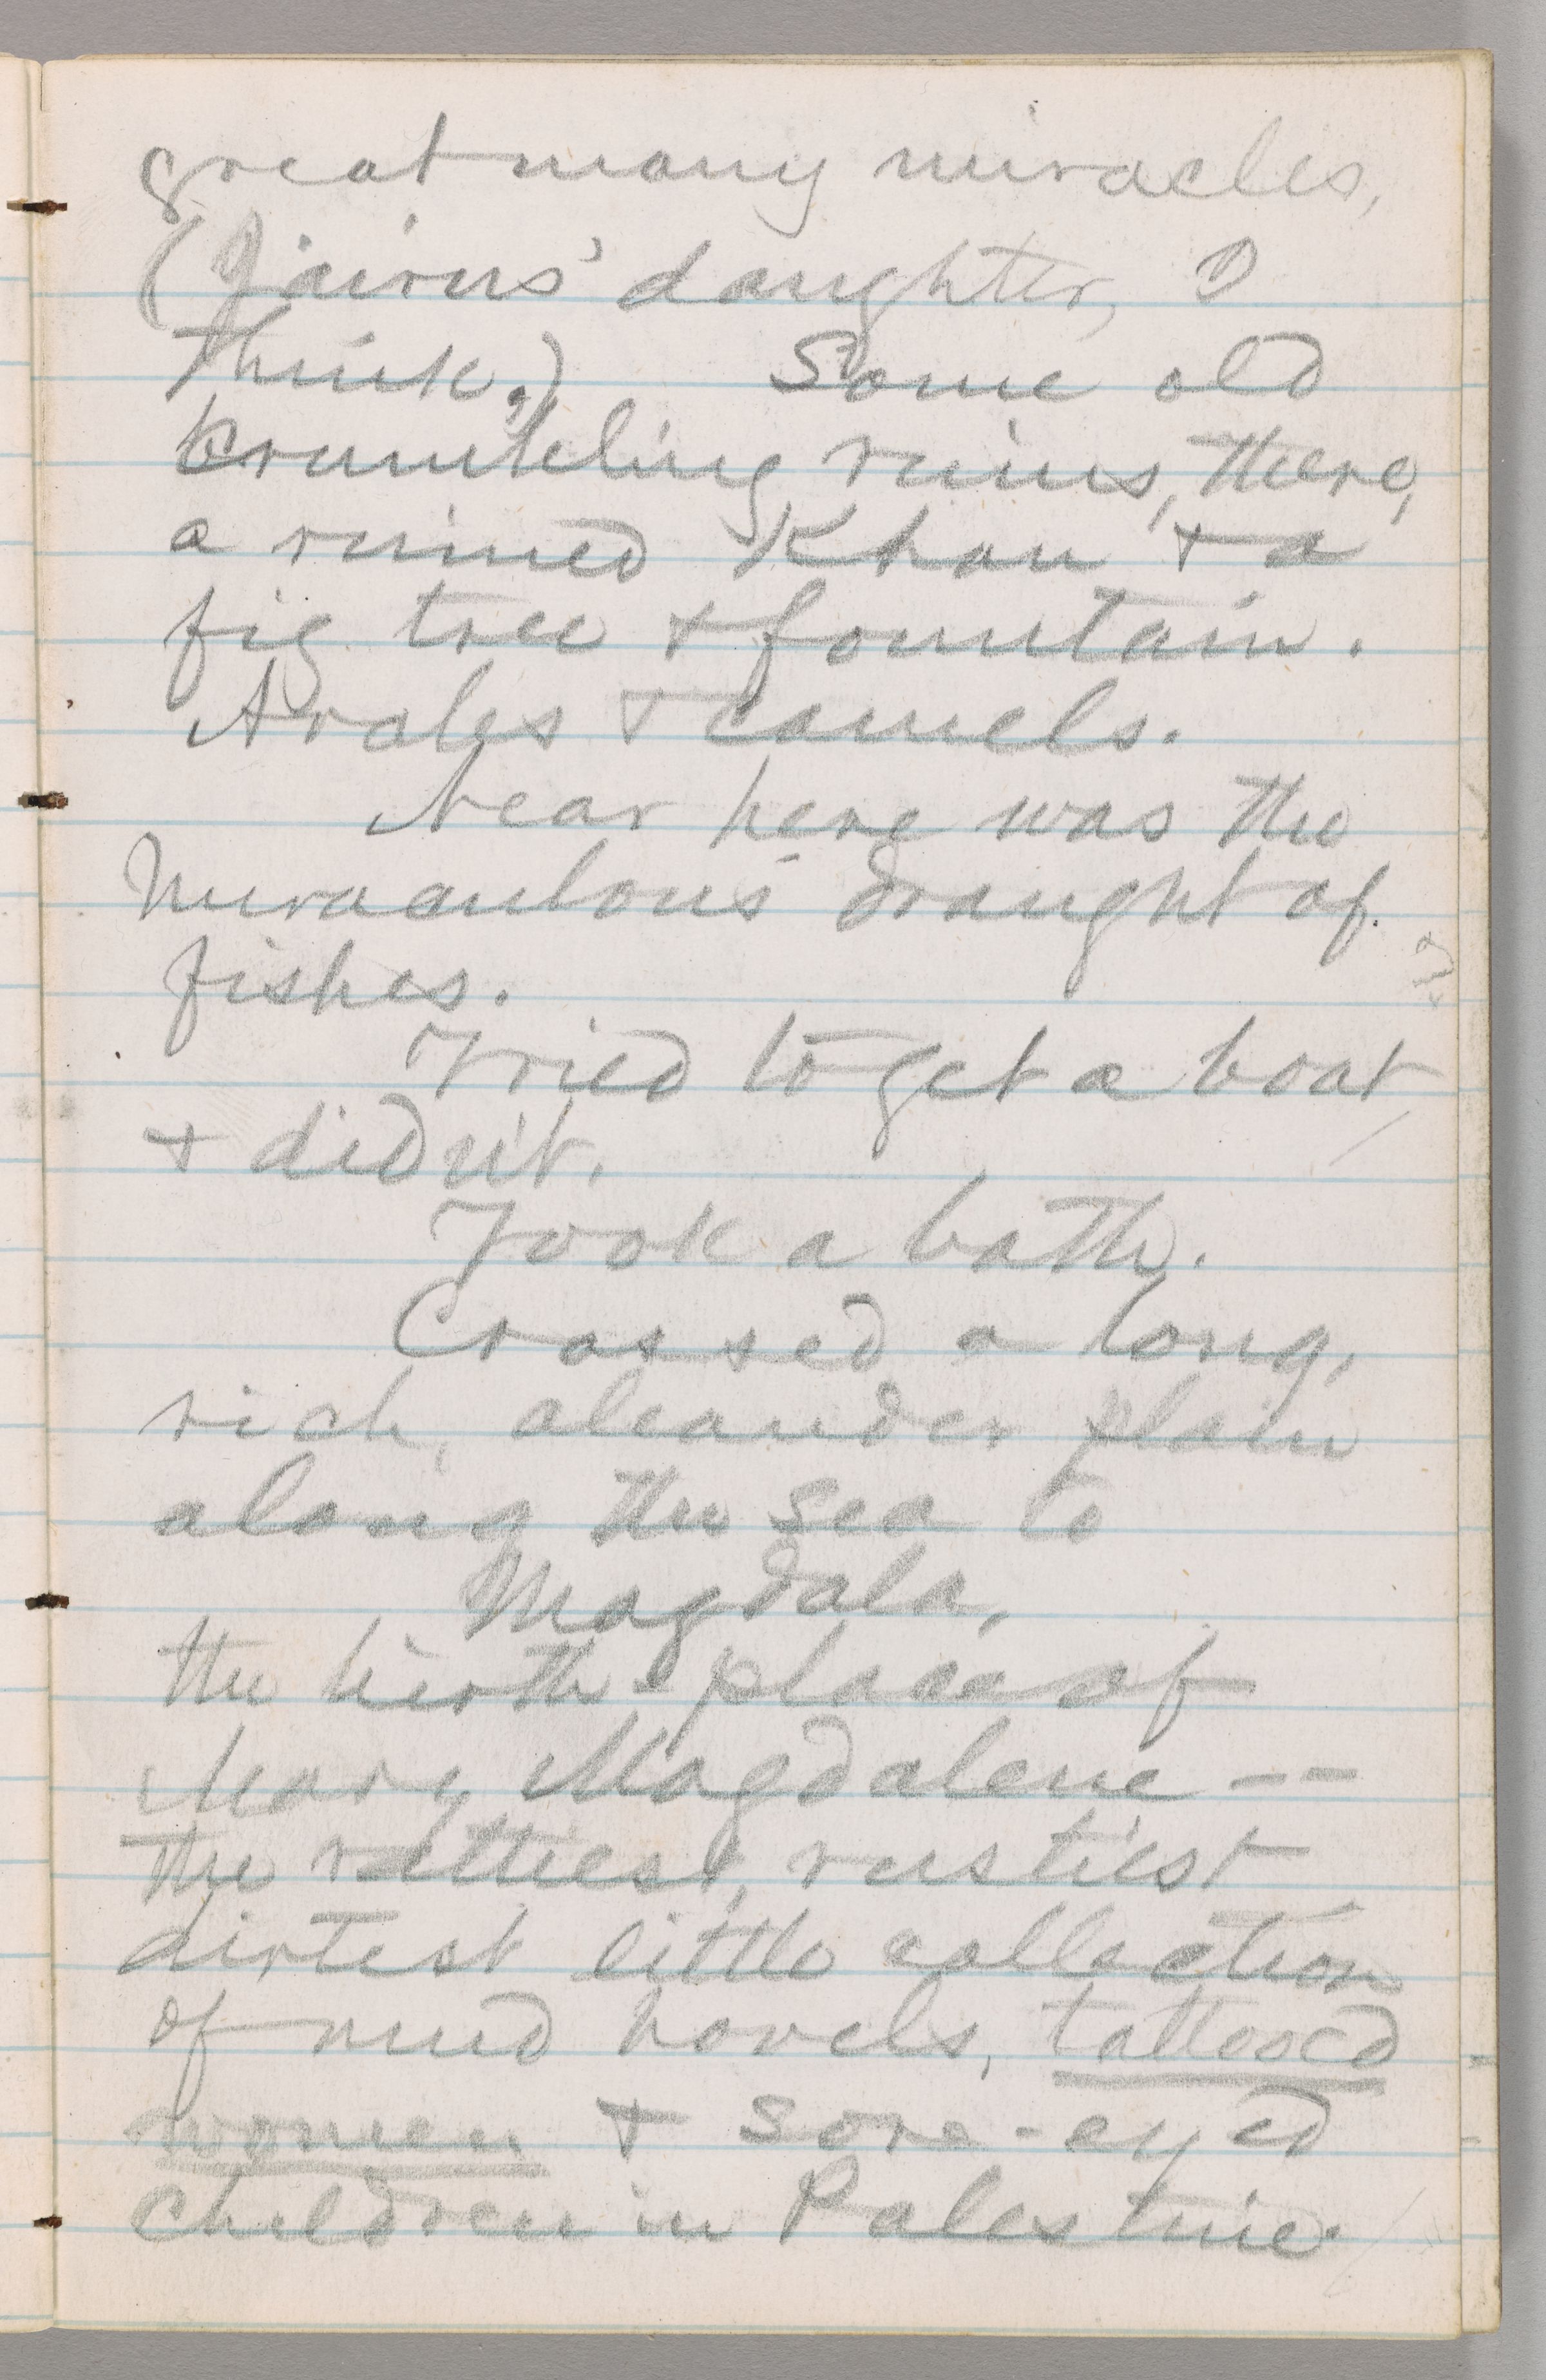 great many miracles,
(Jairus' daughter, I
think.) Some old
crumbling ruins, there,
a ruined Khan & a
fig tree & fountain.
Arabs & camels.
Near here was the
Miraculous draught of
fishes.
Tried to get a boat,
& didn't.
Took a bath.
Crossed a long,
rich, oleander plain
along the sea to
Magdala,
the birth-place of
Mary Magdalene --
the rattiest, rustiest
dirtest little collection
of mud hovels, tattooed
women & sore-eyed
children in Palestine.